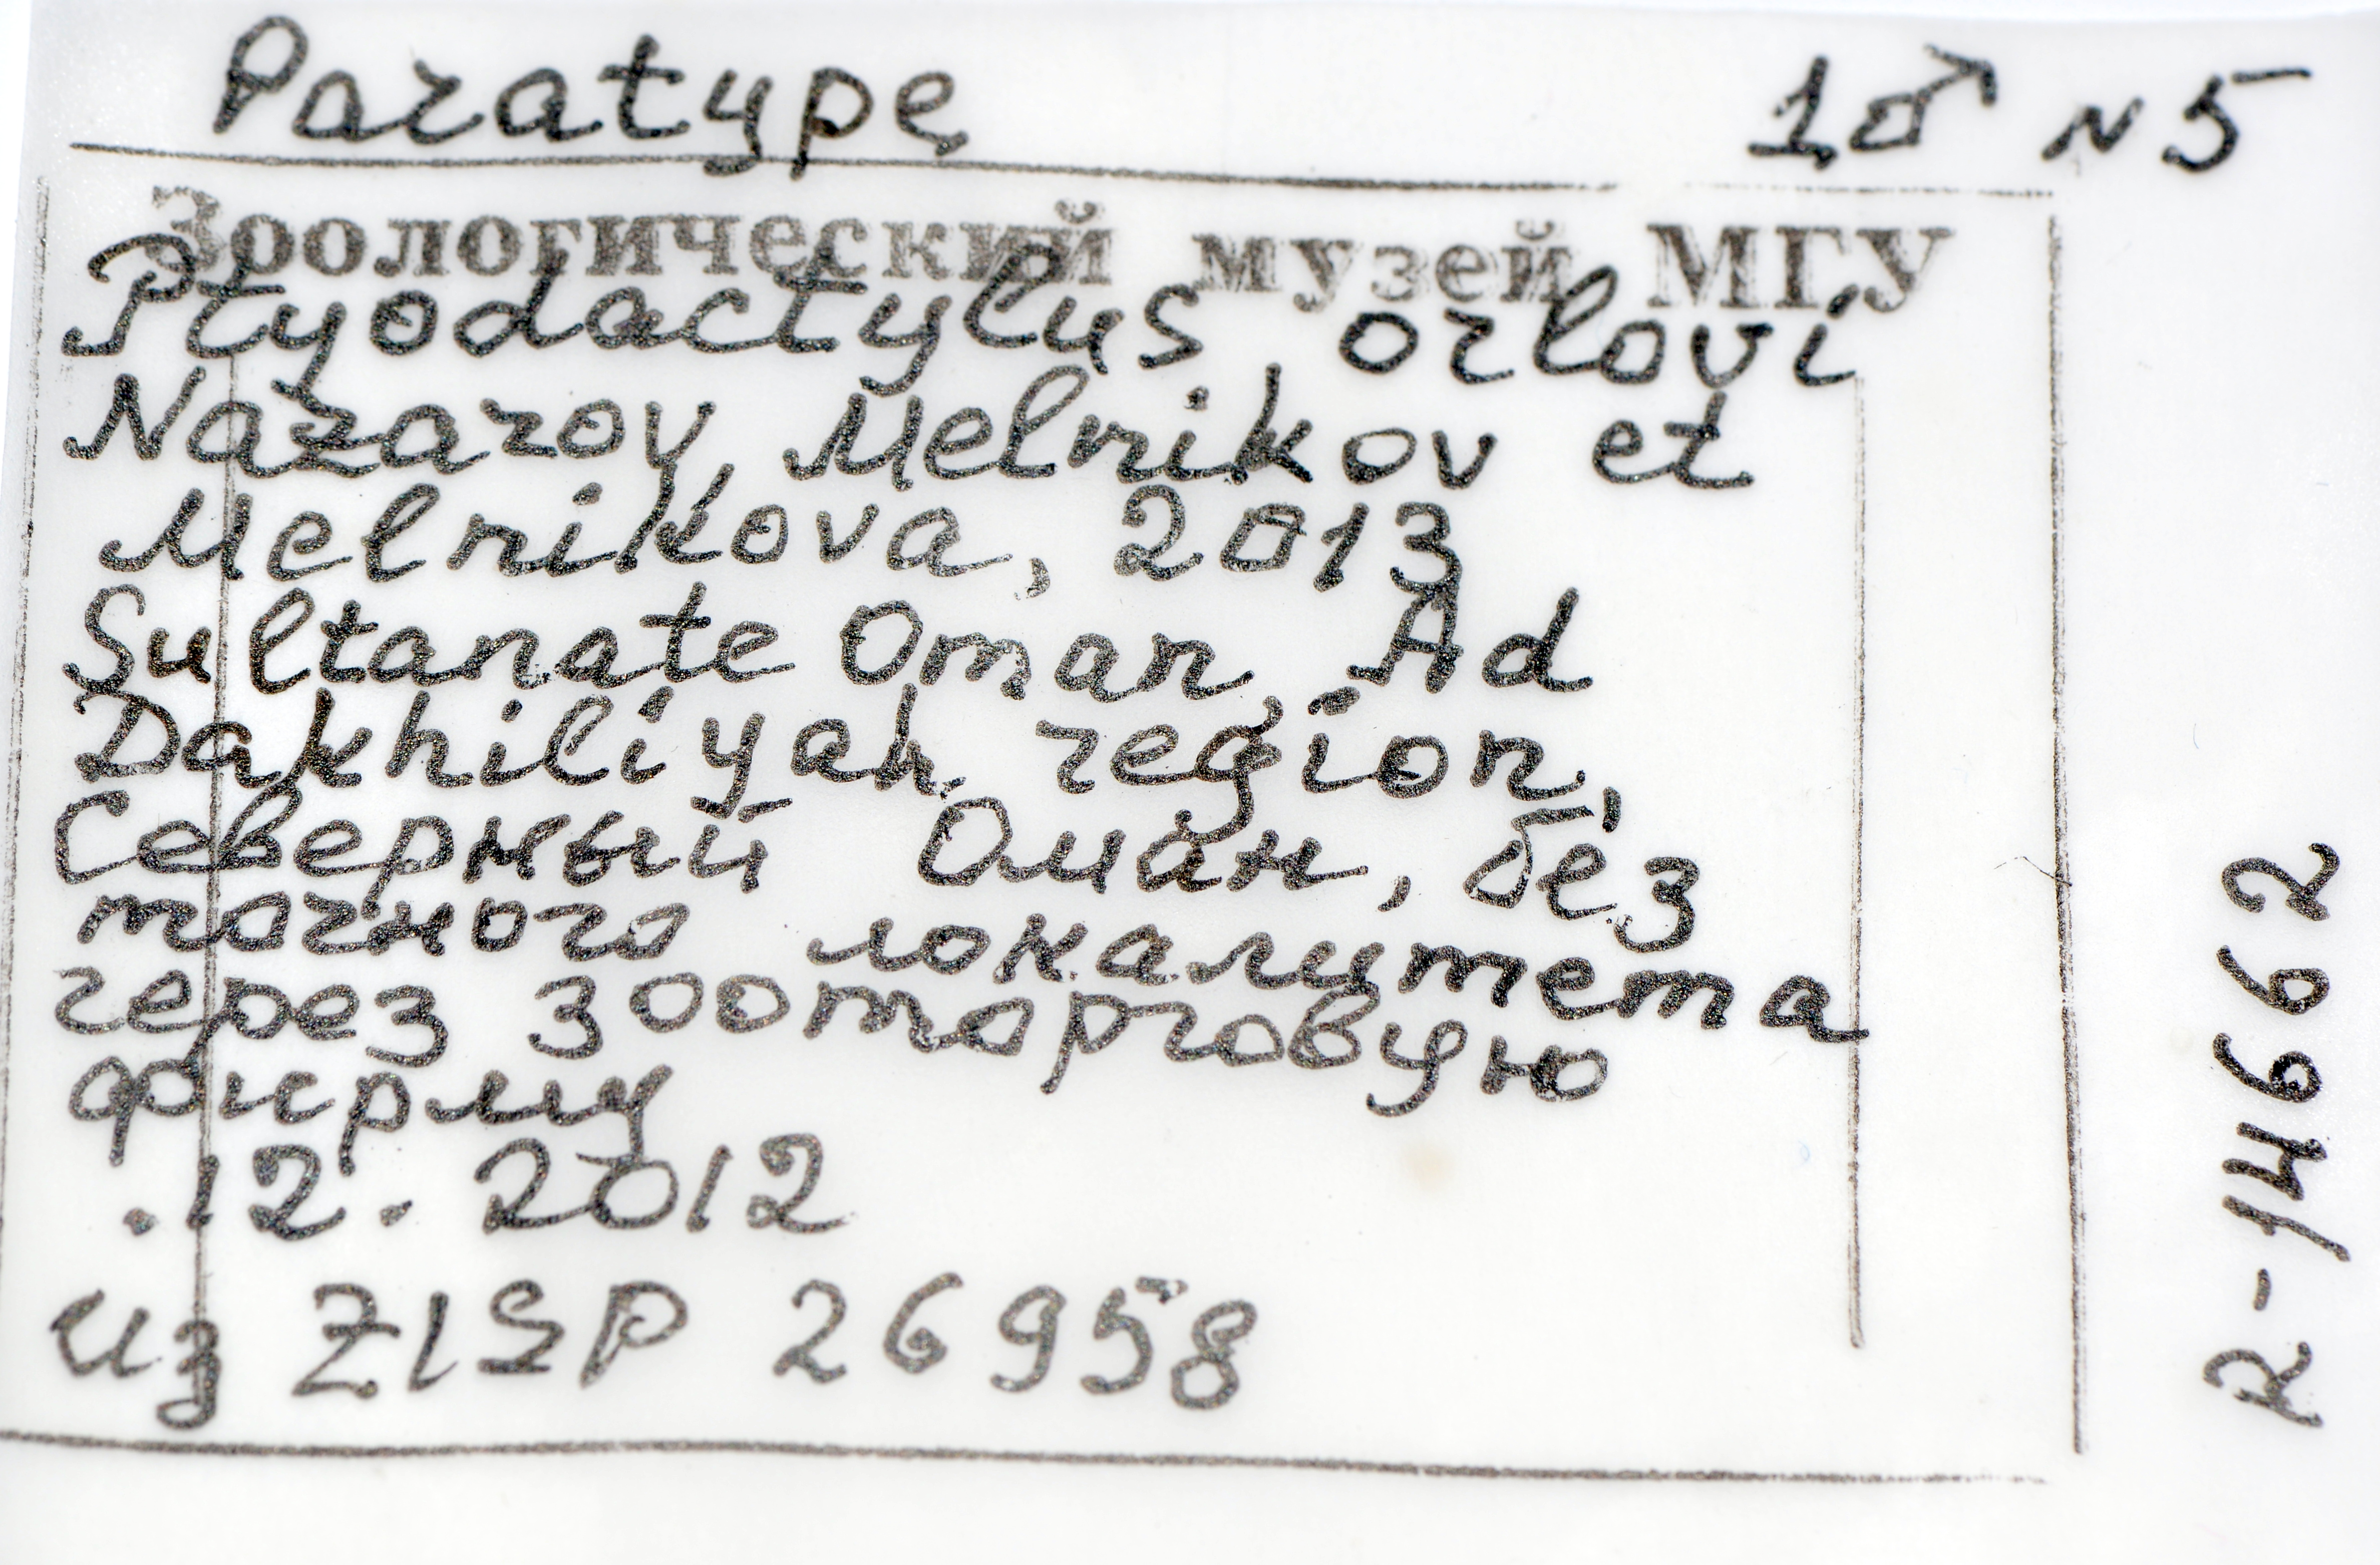 Paratype 1♂ N5
Зоологический музей МГУ
Ptyodactylus orlovi
Nazarov, Melnikov et
Melnikova, 2013
Sultanate Oman, Ad
Dakhiliyah region,
Северный Оман, без
точного локалитета
через зооторговую
фирму
.12. 2012
из ZISP 26958
R-14662